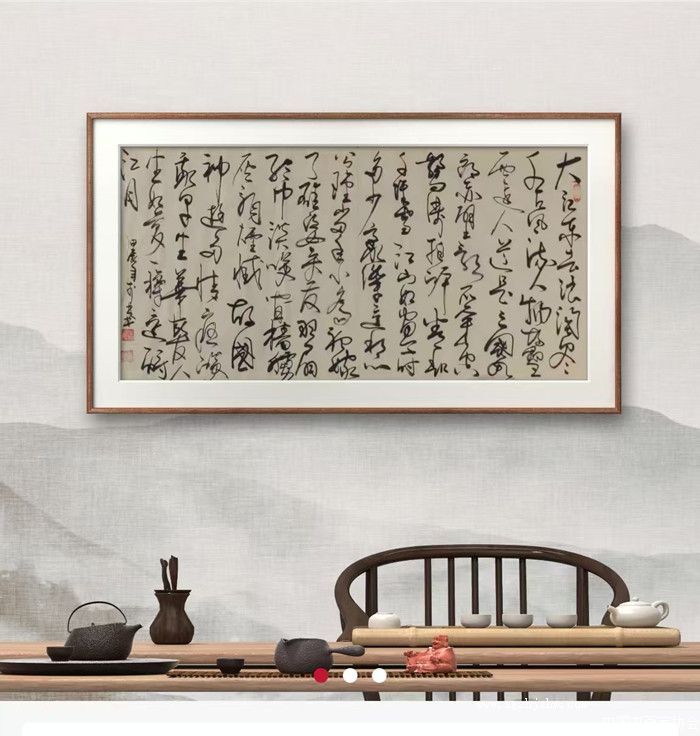 大江东去浪淘尽
千古风流人物故垒
西边人道是三国周
郎赤壁乱石穿空
惊涛拍岸卷起
千堆雪江山如画一时
多少豪杰遥想
公瑾当年小乔初嫁
了雄姿英发羽扇
纶巾谈笑间樯橹
灰飞烟灭故国
神游多情应笑
我早生华发人
生如梦一樽还酹
江月